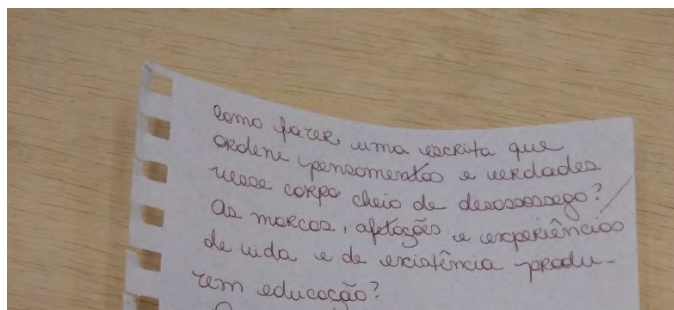 como fazer uma escrita que
ordene pensamentos e verdades
nesse corpo cheio de desassossego?
As marcas, afetações e experiências
de vida e de existência produ-
zem educação?